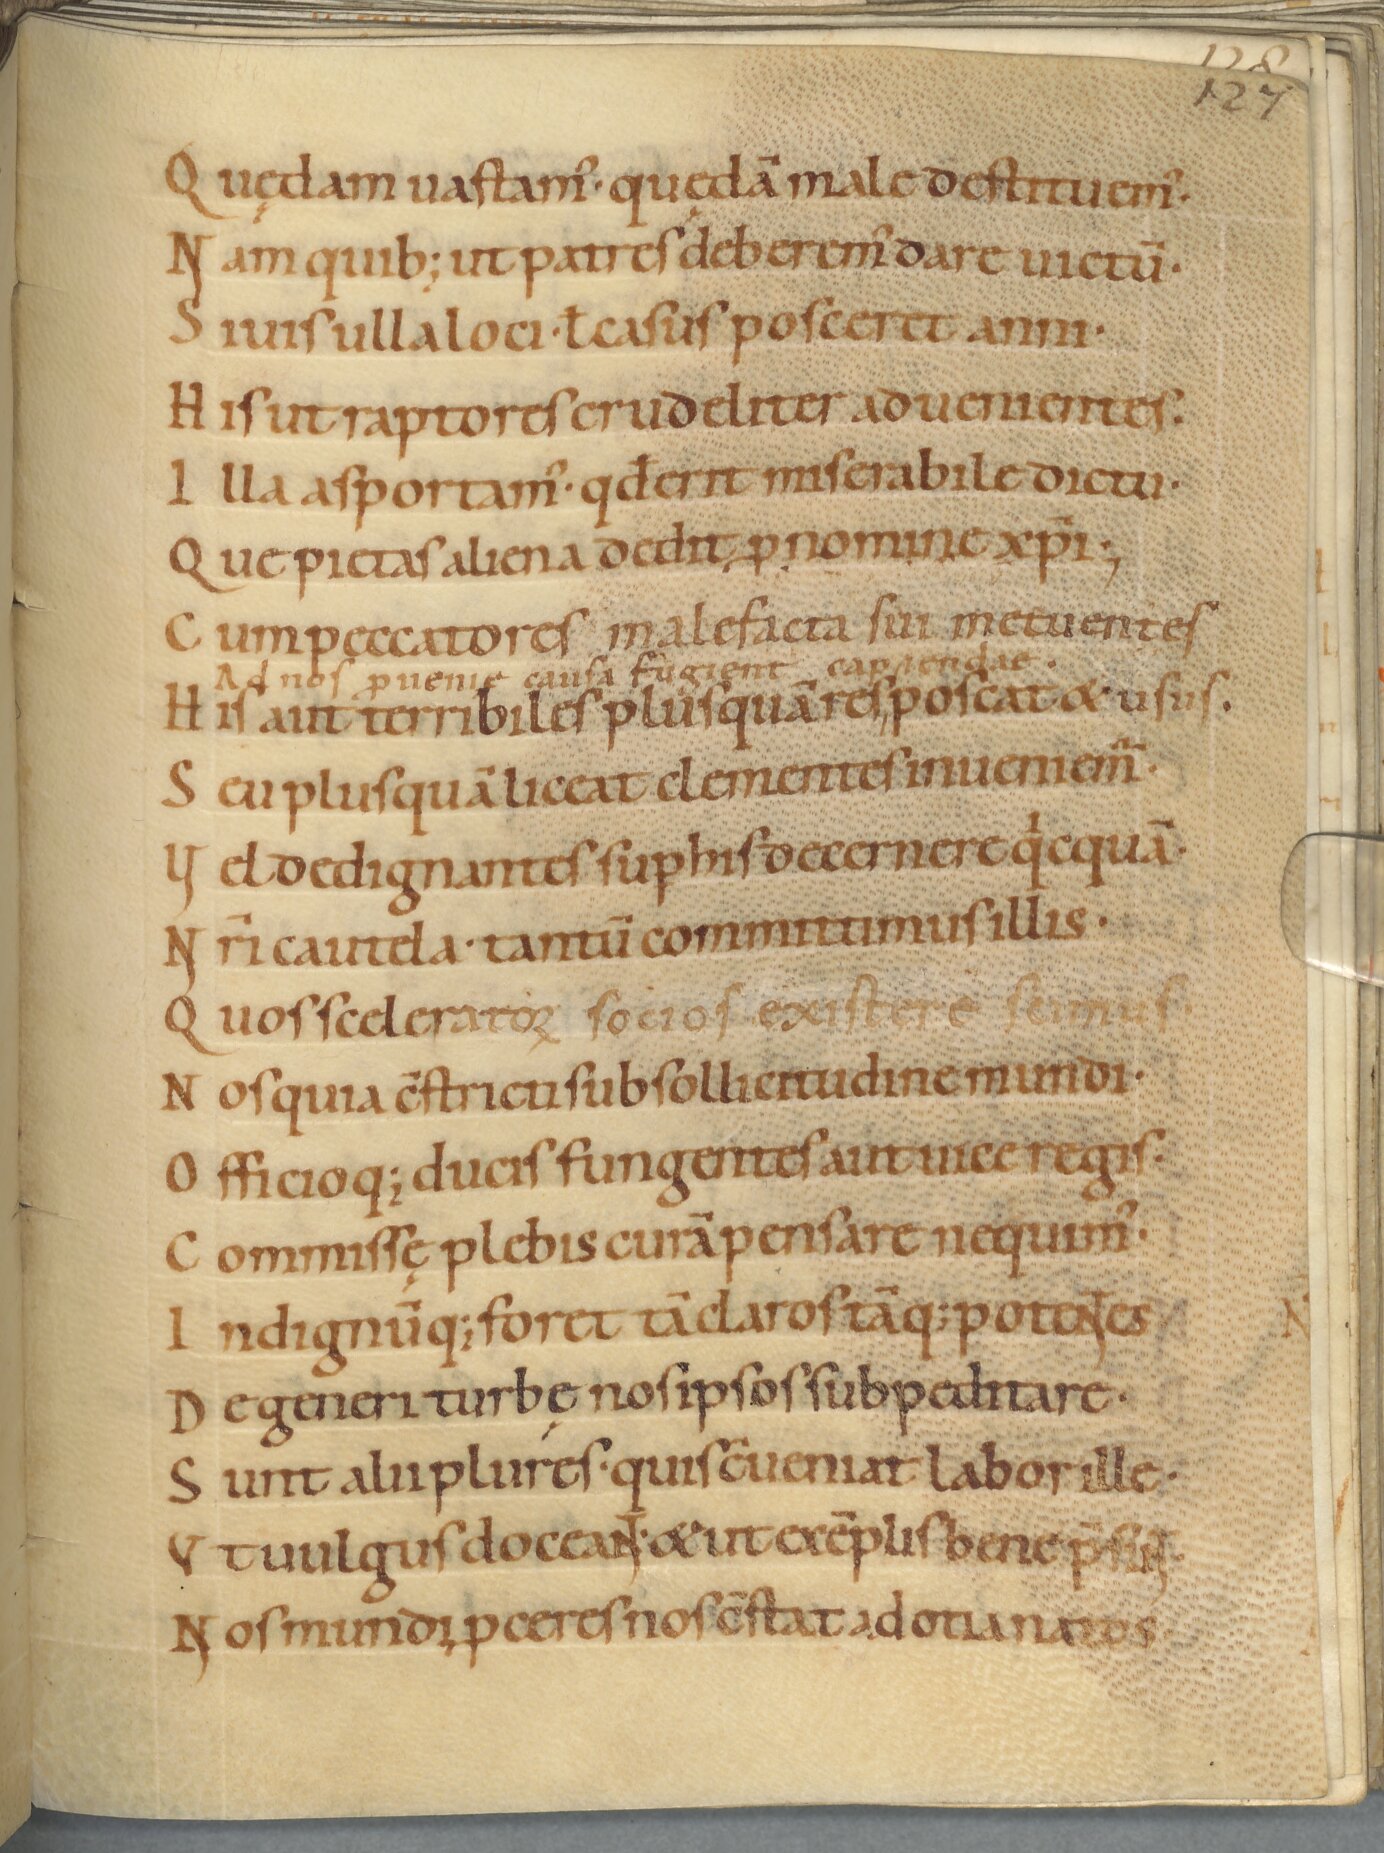 128
127
Quędam uastam᷒· quędā male destituem᷒·
Nam quib; ut patres deberem᷒ dare uictū·
Si uis ulla loci· ł casus poscerit anni·
His ut raptores crudeliter aduenientes·
Illa asportam᷒· qđ erit miserabile dictu·
Que pietas aliena dedit, ꝓ nomine xp̄i·,
Cum peccatores malefacta sui metuentes
Ad nos ꝑuenie causa fugient capiendae·
His aut terribiles plus quā res poscat & usus·
Seu plus quā liceat clementes inueniem᷒·
Vel dedignantes suꝑ his decernere q̇cquā·
Nr̄i cautela· tantū committimus illis·
Quos sceleratoꝝ socios existere scimus·
Nos quia c̄stricti sub sollicitudine mundi·
Officioq; ducis fungentes aut uice regis·
Commissę plebis curā pensare nequim᷒·
Indignūq; foret tā claros tāq; potentes
Degeneri turbę nos ipsos subpeditare·
Sunt alii plures· quis c̄ueniat labor ille·
Vt uulgus doceant· & ut exēplis bene p̄sint·
Nos mundi ꝓceres nos c̄stat ad otia natos